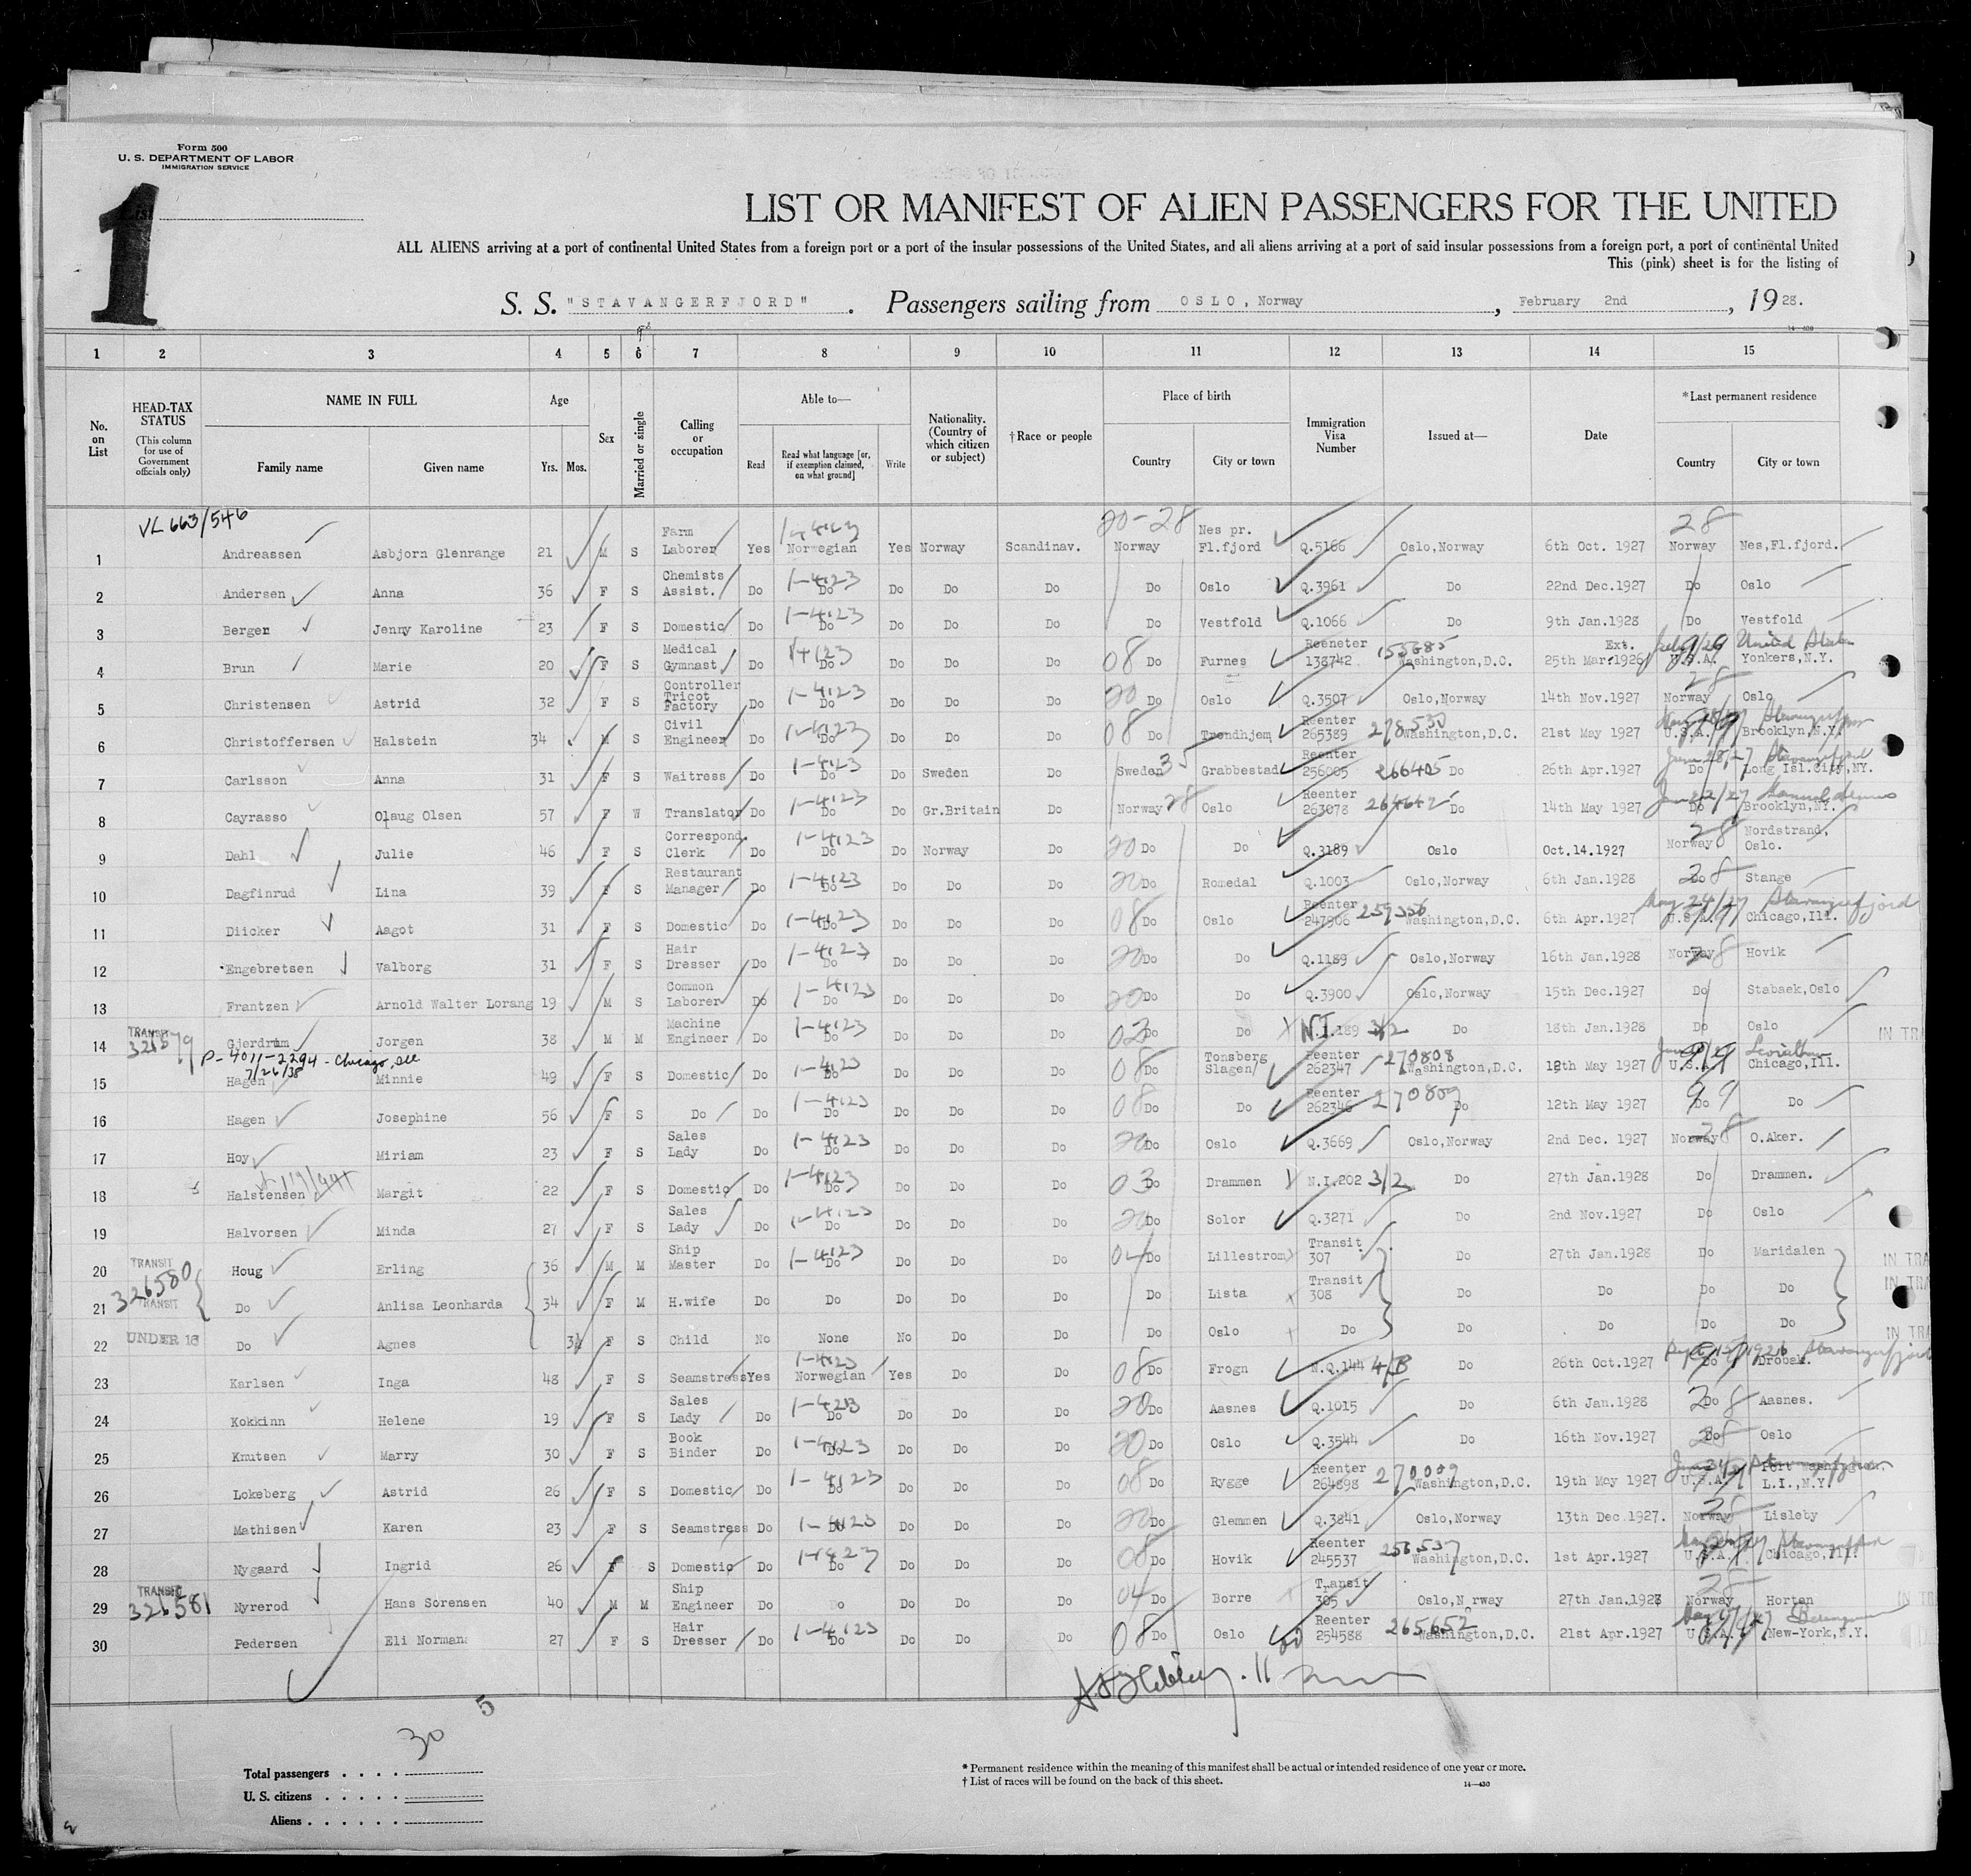 Form 500
U. S. DEPARTMENT OF LABOR
IMMIGRATION SERVICE
List
1
LIST OR MANIFEST OF ALIEN PASSENGERS FOR THE UNITED
ALL ALIENS arriving at a port of continental United States from a foreign port or a port of the insular possessions of the United States, and all aliens arriving at a port of said insular possessions from a foreign port, a port of continental United
This (pink) sheet is for the listing of
S. S. "STAVANGERFJORD". Passengers sailing from OSLO, Norway, February 2nd, 1928.
14—430
1 2 3 4 5 6 7 8 9 10 11 12 13 14 15
No. on List
HEAD-TAX STATUS (This column for use of Government officials only)
NAME IN FULL Family name Given name
Age Yrs. Mos.
Sex
Married or single
Calling or occupation
Able to— Read Read what language [or, if exemption claimed, on what ground] Write
Nationality. (Country of which citizen or subject)
†Race or people
Place of birth Country City or town
Immigration Visa Number
Issued at—
Date
*Last permanent residence Country City or town
VL 663/546
1 Andreassen Asbjorn Glenrange 21 M S Farm Laborer Yes Norwegian 1-4123 Yes Norway Scandinav. 20-28 Norway Nes pr. Fl.fjord Q.5166 Oslo,Norway 6th Oct. 1927 28 Norway Nes,Fl.fjord.
2 Andersen Anna 36 F S Chemists Assist. Do 1-4123 Do Do Do Do Do Oslo Q.3961 Do 22nd Dec.1927 Do Oslo
3 Berger Jenny Karoline 23 F S Domestic Do 1-4123 Do Do Do Do Do Vestfold Q.1066 Do 9th Jan.1928 Do Vestfold
4 Brun Marie 20 F S Medical Gymnast Do 1-4123 Do Do Do Do 08 Do Furnes Reeneter 138742 155685 Washington,D.C. Ext. 25th Mar.1926 U.S.A. United States Yonkers,N.Y.
5 Christensen Astrid 32 F S Controller Tricot Factory Do 1-4123 Do Do Do Do 20 Do Oslo Q.3507 Oslo,Norway 14th Nov.1927 28 Norway Oslo
6 Christoffersen Halstein 34 M S Civil Engineer Do 1-4123 Do Do Do Do 08 Do Trondhjem Reenter 265389 278530 Washington,D.C. 21st May 1927 U.S.A. Brooklyn,N.Y.
7 Carlsson Anna 31 F S Waitress Do 1-4123 Do Do Sweden Do Sweden 35 Grabbestad Reenter 256005 266405 Do 26th Apr.1927 Do Long Isl.City,NY.
8 Cayrasso Olaug Olsen 57 F W Translator Do 1-4123 Do Do Gr.Britain Do Norway 28 Oslo Reenter 263078 264642 Do 14th May 1927 Do Brooklyn,NY.
9 Dahl Julie 46 F S Correspond. Clerk Do 1-4123 Do Do Norway Do 20 Do Do Q.3189 Oslo Oct.14.1927 28 Norway Nordstrand, Oslo.
10 Dagfinrud Lina 39 F S Restaurant Manager Do 1-4123 Do Do Do Do 20 Do Romedal Q.1003 Oslo,Norway 6th Jan.1928 28 Do Stange
11 Diicker Aagot 31 F S Domestic Do 1-4123 Do Do Do Do 08 Do Oslo Reenter 247906 259356 Washington,D.C. 6th Apr.1927 May 24/27 Stavangerfjord U.S.A. Chicago,Ill.
12 Engebretsen Valborg 31 F S Hair Dresser Do 1-4123 Do Do Do Do 20 Do Do Q.1189 Oslo,Norway 16th Jan.1928 28 Norway Hovik
13 Frantzen Arnold Walter Lorang 19 M S Common Laborer Do 1-4123 Do Do Do Do 20 Do Do Q.3900 Oslo,Norway 15th Dec.1927 Do Stabaek,Oslo
14 TRANSIT 321579 Gjerdrum Jorgen 38 M M Machine Engineer Do 1-4123 Do Do Do Do 02 Do Do N.I.189 3/2 Do 18th Jan.1928 Do Oslo IN TRA
P-4011-2294 - Chicago, Ill 7/26/38
15 Hagen Minnie 49 F S Domestic Do 1-4123 Do Do Do Do 08 Do Tonsberg Slagen Reenter 262347 270808 Washington,D.C. 12th May 1927 U.S.A. Leviathan Chicago,Ill.
16 Hagen Josephine 56 F S Do Do 1-4123 Do Do Do Do 08 Do Do Reenter 262346 270809 Do 12th May 1927 99 Do Do
17 Hoy Miriam 23 F S Sales Lady Do 1-4123 Do Do Do Do 20 Do Oslo Q.3669 Oslo,Norway 2nd Dec. 1927 28 Norway O.Aker.
18 Halstensen Margit 22 F S Domestic Do 1-4123 Do Do Do Do 03 Do Drammen N.I.202 3/2 Do 27th Jan.1928 Do Drammen.
19 Halvorsen Minda 27 F S Sales Lady Do 1-4123 Do Do Do Do 20 Do Solor Q.3271 Do 2nd Nov.1927 Do Oslo
20 TRANSIT 326580 Houg Erling 36 M M Ship Master Do 1-4123 Do Do Do Do 04 Do Lillestrom Transit 307 Do 27th Jan.1928 Do Maridalen IN TRA
21 TRANSIT Do Anlisa Leonharda 34 F M H.wife Do Do Do Do Do Do Lista Transit 308 Do Do Do Do IN TRA
22 UNDER 16 Do Agnes 3½ F S Child No None No Do Do Do Oslo Do Do Do Do Do IN TRA
23 Karlsen Inga 48 F S Seamstress Yes 1-4123 Norwegian Yes Do Do 08 Do Frogn N.Q.144 4/B Do 26th Oct.1927 Do Drobak. Stavangerfjord
24 Kokkinn Helene 19 F S Sales Lady Do 1-4123 Do Do Do Do 20 Do Aasnes Q.1015 Do 6th Jan.1928 28 Do Aasnes.
25 Knutsen Marry 30 F S Book Binder Do 1-4123 Do Do Do Do 20 Do Oslo Q.3544 Do 16th Nov.1927 28 Do Oslo
26 Lokeberg Astrid 26 F S Domestic Do 1-4123 Do Do Do Do 08 Do Rygge Reenter 264898 270009 Washington,D.C. 19th May 1927 U.S.A. Port Washington. L.I.,N.Y.
27 Mathisen Karen 23 F S Seamstress Do 1-4123 Do Do Do Do 20 Do Glemmen Q.3841 Oslo,Norway 13th Dec.1927. 28 Norway Lisleby
28 Nygaard Ingrid 26 F S Domestic Do 1-4123 Do Do Do Do 08 Do Hovik Reenter 245537 256537 Washington,D.C. 1st Apr.1927 U.S.A. Chicago,Ill.
29 TRANSIT 326581 Nyrerod Hans Sorensen 40 M M Ship Engineer Do Do Do Do Do 04 Do Borre Transit 305 Oslo,Norway 27th Jan.1928 28 Norway Horten IN TR
30 Pedersen Eli Normann 27 F S Hair Dresser Do 1-4123 Do Do Do Do 08 Do Oslo Reenter 254588 265652 Washington,D.C. 21st Apr.1927 U.S.A. New-York,N.Y.
5
30
Total passengers
U. S. citizens
Aliens
* Permanent residence within the meaning of this manifest shall be actual or intended residence of one year or more.
† List of races will be found on the back of this sheet.
14—430